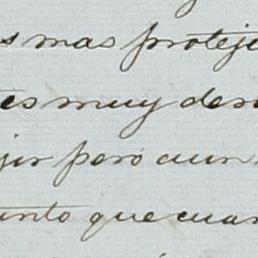 s mas proteje
es muy des
jir pero aun
unto que cuan